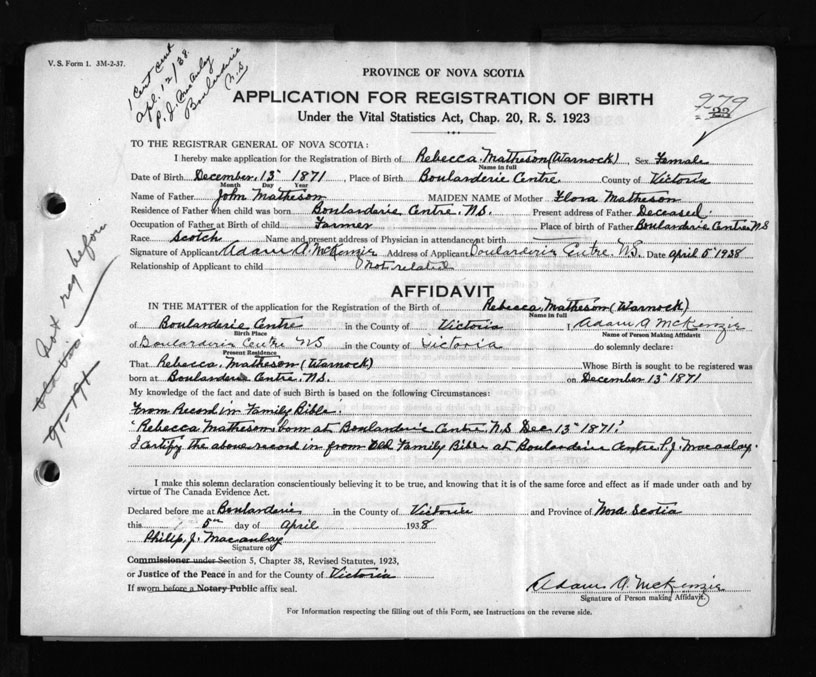 V. S. Form 1. 3M-2-37.
1 Cert sent
Apl. 12/38
P. J. Macaulay
Boularderie
N.S
PROVINCE OF NOVA SCOTIA
APPLICATION FOR REGISTRATION OF BIRTH
Under the Vital Statistics Act, Chap. 20, R. S. 1923
979
23
TO THE REGISTRAR GENERAL OF NOVA SCOTIA:
I hereby make application for the Registration of Birth of Rebecca Matheson (Warnock), Sex Female
Name in full
Date of Birth December 13 1871, Place of Birth Boularderie Centre County of Victoria
Month Day Year
Name of Father John Matheson MAIDEN NAME of Mother Flora Matheson
Residence of Father when child was born Boularderie Centre. N.S. Present address of Father Deceased
Occupation of Father at Birth of child Farmer Place of birth of Father Boularderie Centre N S
Race Scotch Name and present address of Physician in attendance at birth
Signature of Applicant Adam A. McKenzie Address of Applicant Boularderie Centre. N.S. Date april 5 1938
Relationship of Applicant to child Not related
AFFIDAVIT
IN THE MATTER of the application for the Registration of the Birth of Rebecca Matheson (Warnock)
Name in full
of Boularderie Centre in the County of Victoria I Adam A McKenzie
Birth Place Name of Person Making Affidavit
of Boularderie Centre NS in the County of Victoria do solemnly declare:
Present Residence
That Rebecca Matheson (Warnock) Whose Birth is sought to be registered was
born at Boularderie Centre. N.S. on December 13 1871
My knowledge of the fact and date of such Birth is based on the following Circumstances:
From Record in Family Bible.
"Rebecca Matheson born at Boularderie Centre N.S Dec. 13 1871."
I certify the above record is from Old Family Bible at Boularderie Centre P. J. Macaulay.
I make this solemn declaration conscientiously believing it to be true, and knowing that it is of the same force and effect as if made under oath and by
virtue of The Canada Evidence Act.
Declared before me at Boularderie in the County of Victoria and Province of Nova Scotia
this 5th day of April 1938
Philip. J. Macaulay
Signature of
Commissioner under Section 5, Chapter 38, Revised Statutes, 1923,
or Justice of the Peace in and for the County of Victoria
If sworn before a Notary Public affix seal.
Adam A. McKenzie
Signature of Person making Affidavit.
For Information respecting the filling out of this Form, see Instructions on the reverse side.
Not reg before